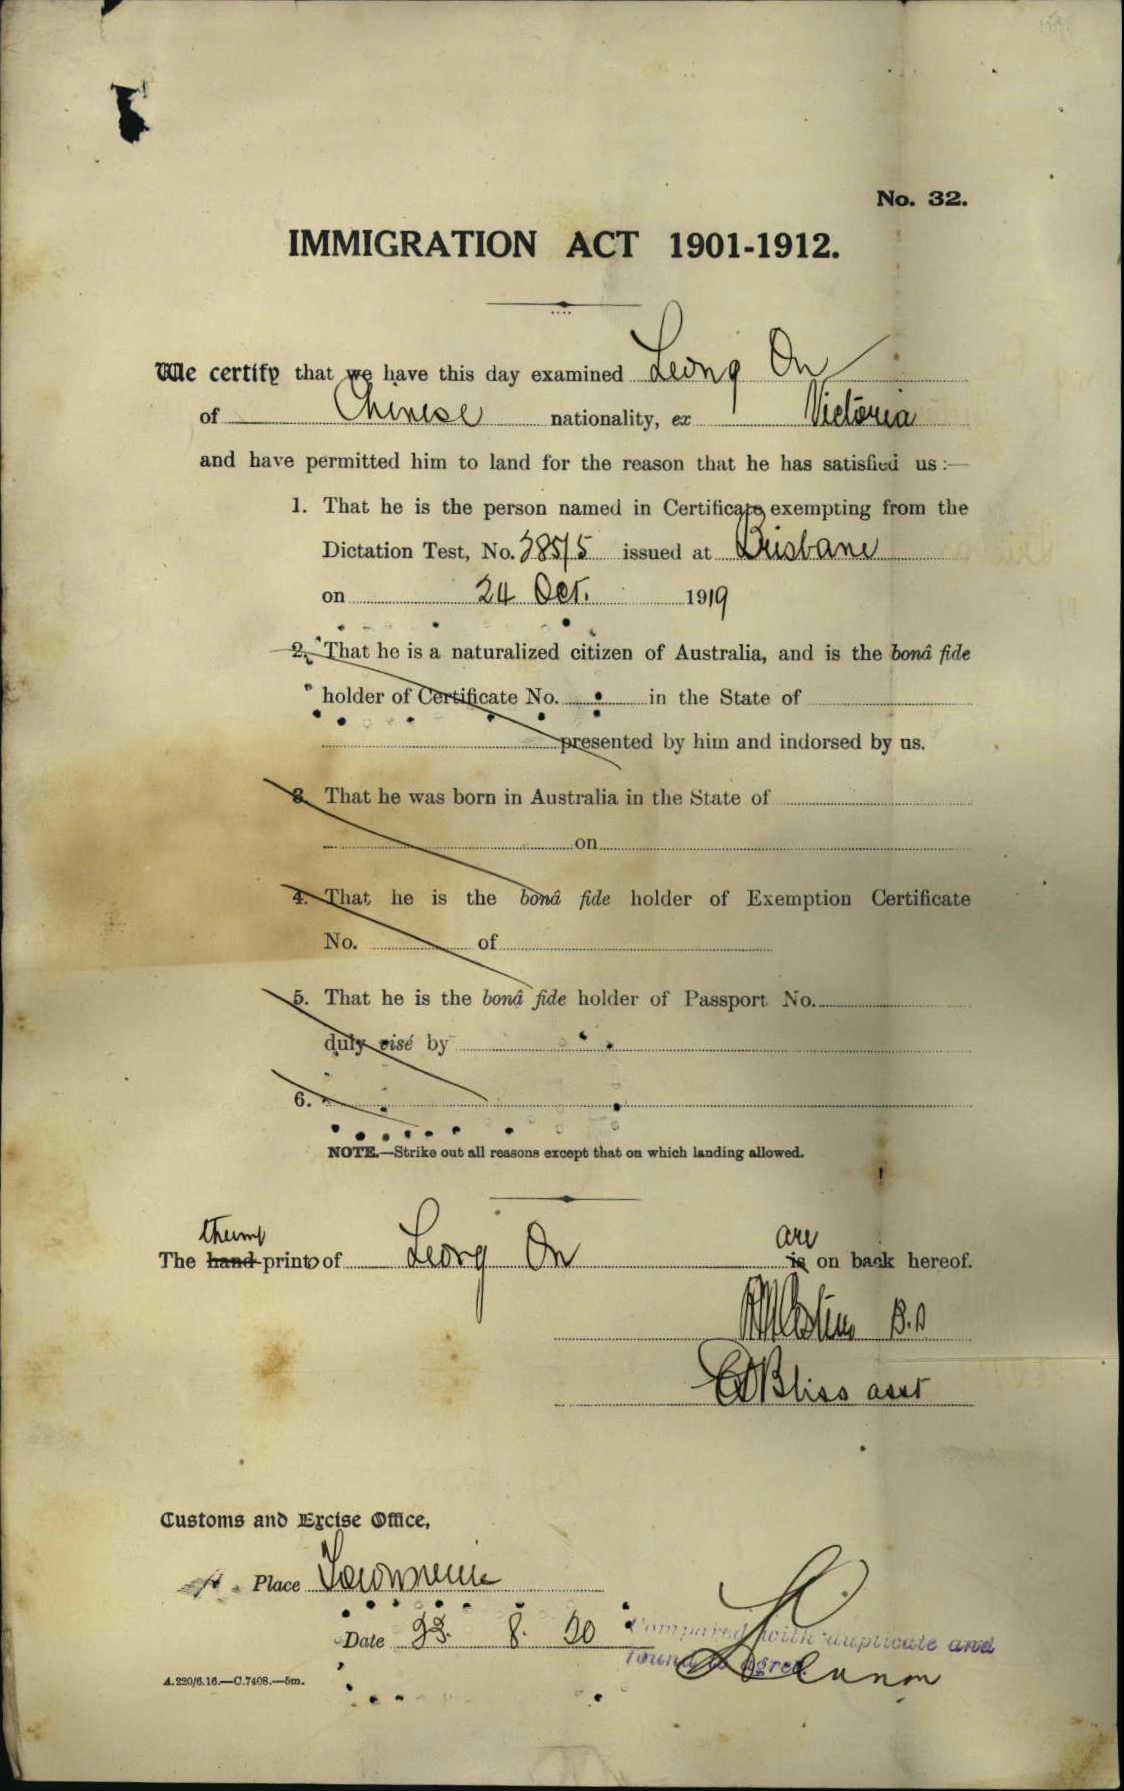 No. 32.
IMMIGRATION ACT 1901-1912.
We certify that we have this day examined Leong On
of Chinese nationality, ex Victoria
and have permitted him to land for the reason that he has satisfied us :—
1. That he is the person named in Certificate exempting from the
Dictation Test, No. 285/5 issued at Brisbane
on 24 Oct. 1919
2. That he is a naturalized citizen of Australia, and is the bonâ fide
holder of Certificate No. in the State of
presented by him and indorsed by us.
3. That he was born in Australia in the State of
on
4. That he is the bonâ fide holder of Exemption Certificate
No. of
5. That he is the bonâ fide holder of Passport No.
duly visé by
6.
NOTE.—Strike out all reasons except that on which landing allowed.
thumb are
The hand prints of Leong On is on back hereof.
B.O
Bliss asst
Customs and Excise Office,
Place Townsville
Date 8. 20
Compared with duplicate and
found to agree
A.220/6.16.—C.7408.—5m.